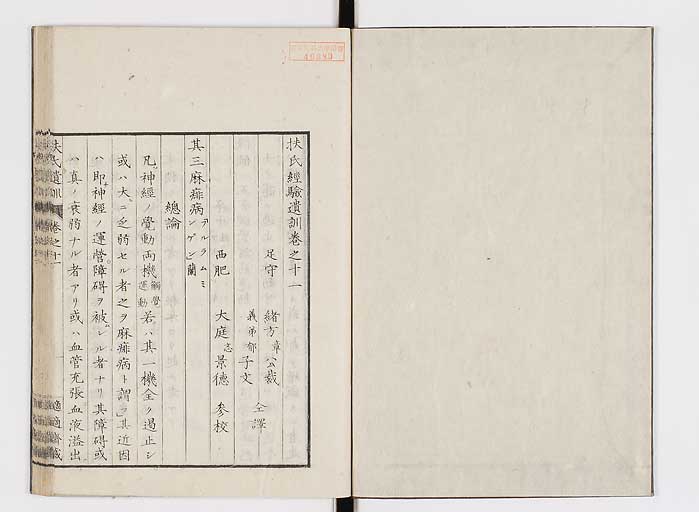 扶氏經驗遺訓卷之十一
足守 緒方章公裁
義弟郁子文 仝譯
西肥 大庭忞景德 參校
其三麻痺病 テルラムミンゲン蘭
總論
凡神經ノ覺動両機 觸覺運動 若ハ其一機全ク遏止シ
或ハ大ニ乏弱セル者之ヲ麻痺病ト謂フ其近因
ハ即神經ノ運營障碍ヲ被ムレル者ナリ其障碍或
ハ真ノ衰弱ナル者アリ或ハ血管充張血液溢出
扶氏遺訓 卷之十一
適適齋藏